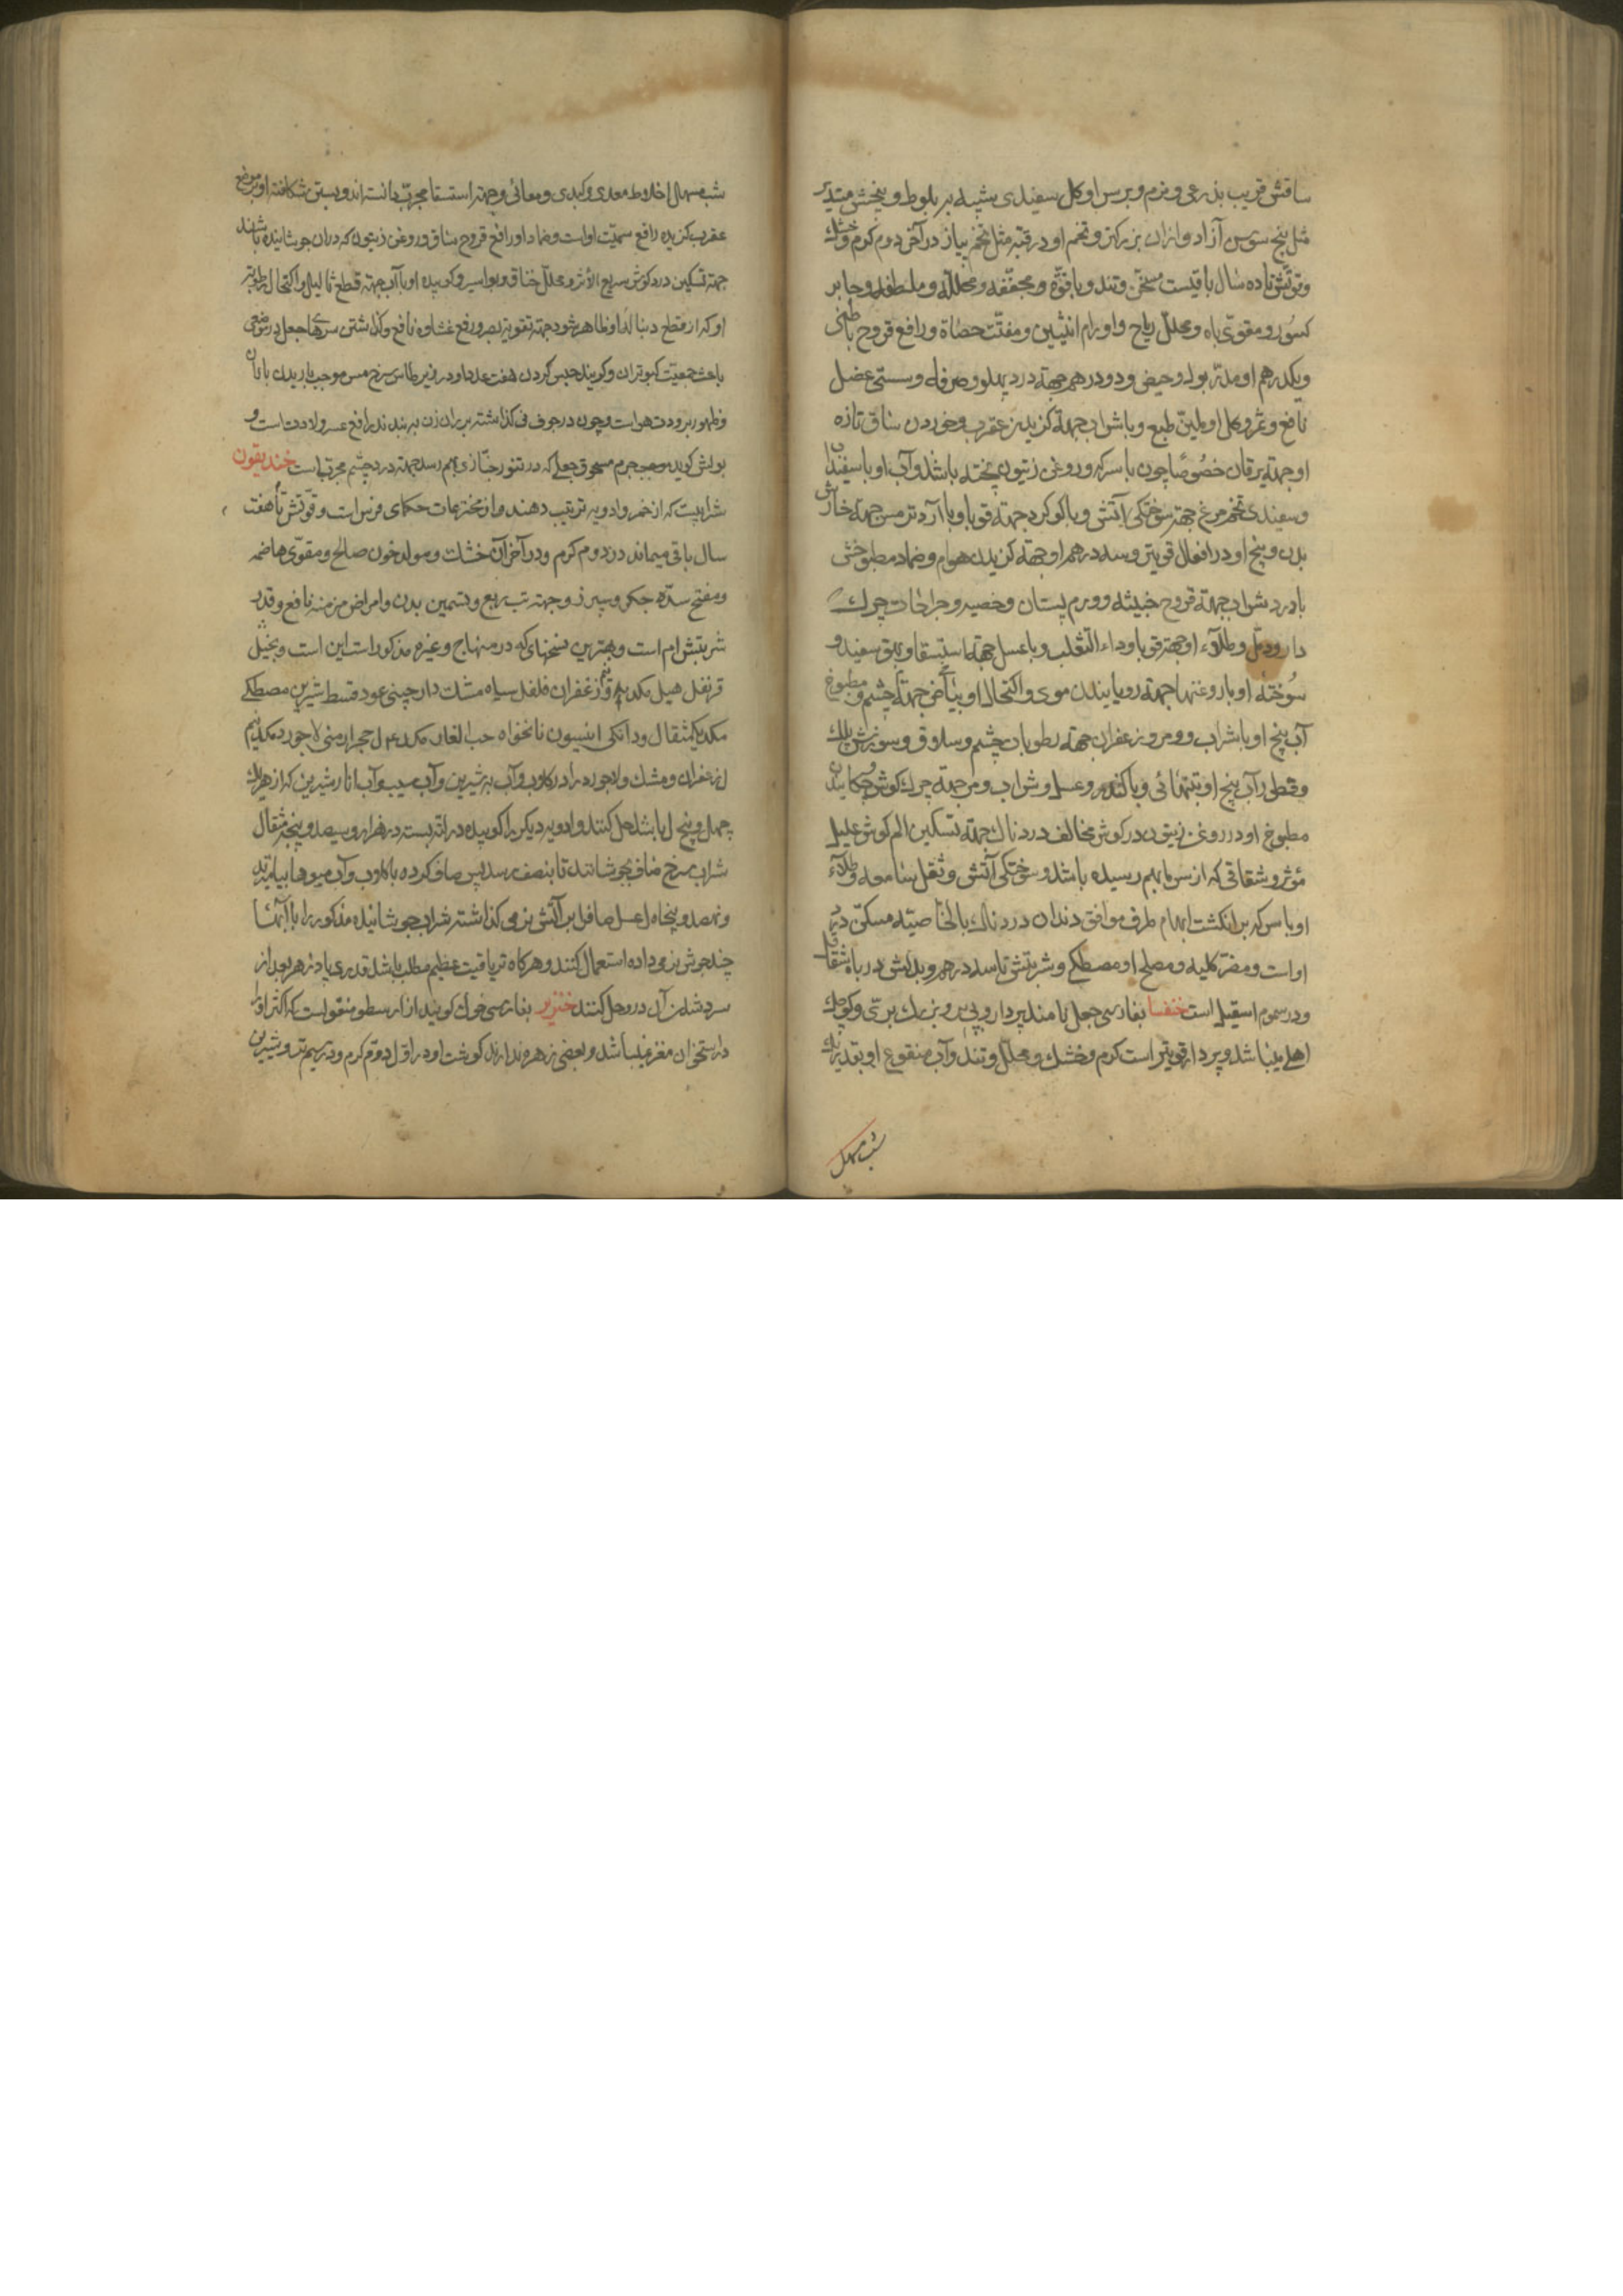 ساقش قریب بذرعی و نرم و برسر او کل سفیدی شبیه ببر بلوط و بیخش مستدیر
مثل بیخ سوسن آزاد و ازان بزرکتر و تخم او در قبه مثل تخم پیاز در آخر دوم کرم و خشک
و قوتش تا ده سال باقیست مسخن و تند و با قوة و مجففه و محلله و ملطفه و جابر
کسور و مقوی باه و محلل ریاح و اورام انثیین و مفتت حصاة و رافع قروح باطنی
و یکدرهم او مدر بول و حیض و دو درهم جهة درد پهلو و سرفه و سستی عضل
نافع و ثمر و کل او ملین طبع و با شراب جهة کزیدن عقرب و خوردن ساق تازه
او جهة یرقان خصوصا چون با سرکه و روغن زیتون پخته باشد و آب او با سفیداب
و سفیدی تخم مرغ جهة سوختکی آتش و با کوکرد جهة قوبا و با آرد ترمس جهة خارش
بدن و بیخ او در افعال قویتر و سه درهم او جهة کزیدن هوام و ضماد مطبوخش
با درد شراب جهة قروح خبیثه و ورم پستان و خصیه و جراحات چرک
دار و دمل و طلاء او جهة قوبا و داء الثعلب و با عسل جهة استسقا و بهق سفید و
سوخته او با روغنها جهة رویانیدن موی و اکتحال او بیاض جهة چشم و مطبوخ
آب بیخ او با شراب و مر و زعفران جهة رطوبات چشم و سلاق و سوزش پلک
و قطور آب بیخ او بتنهائی و با کندر و عسل و شراب و مر جهة چرک کوش چکانیدن
مطبوخ او در روغن زیتون در کوش مخالف دردناک جهة تسکین الم کوش علیل
مؤثر و شقاقی که از سرما بهم رسیده باشد و سوختکی آتش و ثقل سامعه و طلاء
او با سرکه بر انکشت ابهام طرف موافق دندان دردناک بالخاصیه مسکن درد
او است و مضر کلیه و مصلح او مصطکی و شربتش تا سه درهم و بدلش در باه شقاقل
و در سموم اسقیل است خنفسا بفارسی جعل نامند پردار و بی پر و بزرک بری و کوچک
اهلی میباشد و پردار قویتر است کرم و خشک و محلل و تند و آب منقوع او بقدر یک
شب مسهل
شب مسهل اخلاط معدی و کبدی و معائی و جهة استسقا مجرب دانسته اند و بستن شکافته او بر موضع
عقرب کزیده رافع سمیت او است و ضماد او رافع قروح ساق و روغن زیتون که در ان جوشانیده باشند
جهة تسکین درد کوش سریع الاثر و محلل خناق و بواسیر و کوبیده او با آب جهة قطع ثالیل و اکتحال رطوبتی
او که از قطع دنباله او ظاهر شود جهة تقویة بصر و رفع غشاوه نافع و کذاشتن سرهای جعل در موضعی
باعث جمعیت کبوتران و کویند حبس کردن هفت عدد او در زیر طاس سرخ مس موجب باریدن باران
و ظهور برودت هوا است و چون در جوف نی کذاشته بر ران زن ببندند رافع عسر ولادت است و
یونس کوید جرم مسحوق جعلی که در تنور خبازی بهم رسد جهة درد چشم مجرب است خندیقون
شرابیست که از خمر و ادویه ترتیب دهند و از مخترعات حکمای فرس است و قوتش تا هفت
سال باقی میماند در دوم کرم و در آخر آن خشک و مولد خون صالح و مقوی هاضمه
و مفتح سده جکر و سپرز و جهة تب ربع و تسمین بدن و امراض مزمنه نافع و قدر
شربتش ام است و بهترین نسخهای که در منهاج و غیره مذکور است این است زنجبیل
قرنفل هیل مکد زعفران فلفل سیاه مشک دارچینی عود قسط شیرین مصطکی
مکد یکمثقال و دانکی انیسون نانخواه حب الغار مکد حجر ارمنی لاجورد مکد نیم
زعفران و مشک و لاجورد را در کلاب و آب به شیرین و آب سیب و آب انار شیرین که از هریک
چهل و پنج باشد حل کنند و ادویه دیکر را کوبیده در لته بسته در هزار و سیصد و پنج مثقال
شراب سرخ صاف بجوشانند تا بنصف رسد پس صاف کرده با کلاب و آب میوها بیامیزند
و نهصد و پنجاه عسل صاف بر آتش نرمی کذاشته شراب جوشانیده مذکور را با آنها
چند جوش نرمی داده استعمال کنند و هرکاه تریاقیت عظیم مطلب باشد قدری پادزهر بعد از
سرد شدن آن در و حل کنند خنزیر بفارسی خوک کویند از ارسطو منقول است که اکثر او را
در استخوان مغز نمیباشد و بعضی زهره ندارند کوشت او در اول دوم کرم و در سیم تر و شیرین